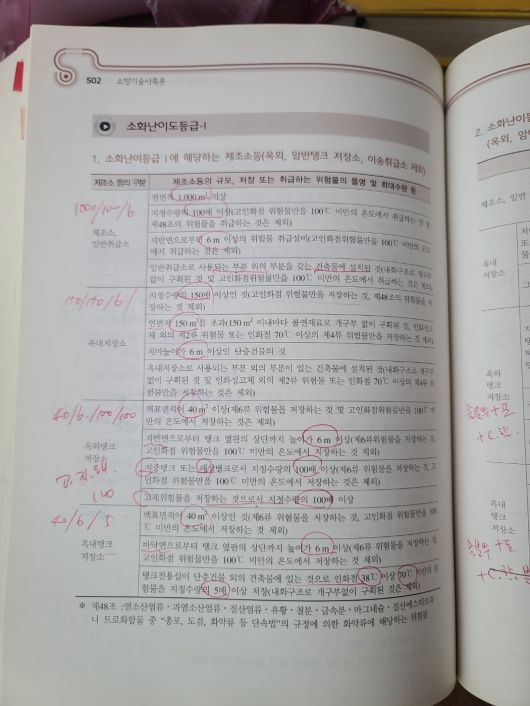 502 소방기술사특론
소화난이도등급-Ⅰ
1. 소화난이등급 Ⅰ에 해당하는 제조소등(옥외, 암반탱크 저장소, 이송취급소 제외)
제조소 등의 구분 제조소등의 규모, 저장 또는 취급하는 위험물의 품명 및 최대수량 등
1000/100/6
제조소,
일반취급소
연면적 1,000 m² 이상
지정수량의 100배 이상(고인화점 위험물만을 100℃ 미만의 온도에서 취급하는 것 및
제48조의 위험물을 취급하는 것은 제외)
지반면으로부터 6 m 이상의 위험물 취급설비(고인화점위험물만을 100℃ 미만의 온도
에서 취급하는 것은 제외)
일반취급소로 사용되는 부분 외의 부분을 갖는 건축물에 설치된 것(내화구조로 개구부
없이 구획된 것 및 고인화점 위험물만을 100℃ 미만의 온도에서 취급하는 것은 제외)
150/150/6
옥내저장소
지정수량의 150배 이상인 것(고인화점 위험물만을 저장하는 것, 제48조의 위험물을 저
장하는 것 제외)
연면적 150 m²를 초과(150 m² 이내마다 불연재료로 개구부 없이 구획된 것, 인화성고
체 외의 제2류 위험물 또는 인화점 70℃ 이상의 제4류 위험물만을 저장하는 것 제외)
처마높이가 6 m 이상인 단층건물의 것
옥내저장소로 사용되는 부분 외의 부분이 있는 건축물에 설치된 것(내화구조로 개구부
없이 구획된 것 및 인화성고체 외의 제2류 위험물 또는 인화점 70℃ 이상의 제4류 위
험물만을 저장하는 것은 제외)
40/6/100/100
옥외탱크
저장소
고.지.해.
100
액표면적이 40 m² 이상(제6류 위험물을 저장하는 것 및 고인화점위험물만을 100℃ 미
만의 온도에서 저장하는 것은 제외)
지반면으로부터 탱크 옆판의 상단까지 높이가 6 m 이상(제6류위험물을 저장하는 것,
고인화점 위험물만을 100℃ 미만의 온도에서 저장하는 것은 제외)
지중탱크 또는 해상탱크로서 지정수량의 100배 이상(제6류 위험물을 저장하는 것, 고
인화점 위험물만을 100℃ 미만의 온도에서 저장하는 것은 제외)
고체위험물을 저장하는 것으로서 지정수량의 100배 이상
40/6/5
옥내탱크
저장소
액표면적이 40 m² 이상인 것(제6류 위험물을 저장하는 것, 고인화점 위험물만을 100
℃ 미만의 온도에서 저장하는 것은 제외)
바닥면으로부터 탱크 옆판의 상단까지 높이가 6 m 이상(제6류 위험물을 저장하는 것,
고인화점 위험물만을 100℃ 미만의 온도에서 저장하는 것은 제외)
탱크전용실이 단층건물 외의 건축물에 있는 것으로 인화점 38℃ 이상 70℃ 미만의 위
험물을 지정수량의 5배 이상 저장(내화구조로 개구부없이 구획된 것은 제외)
※ 제48조 :염소산염류·과염소산염류·질산염류·유황·철분·금속분·마그네슘·질산에스테르류·
니 트로화합물 중 "총포, 도검, 화약류 등 단속법"의 규정에 의한 화약류에 해당하는 위험물
2. 소화난이등
(옥외, 암반
제조소, 일반
옥내
저장소
옥외
탱크
저장소
옥내
탱크
저장소